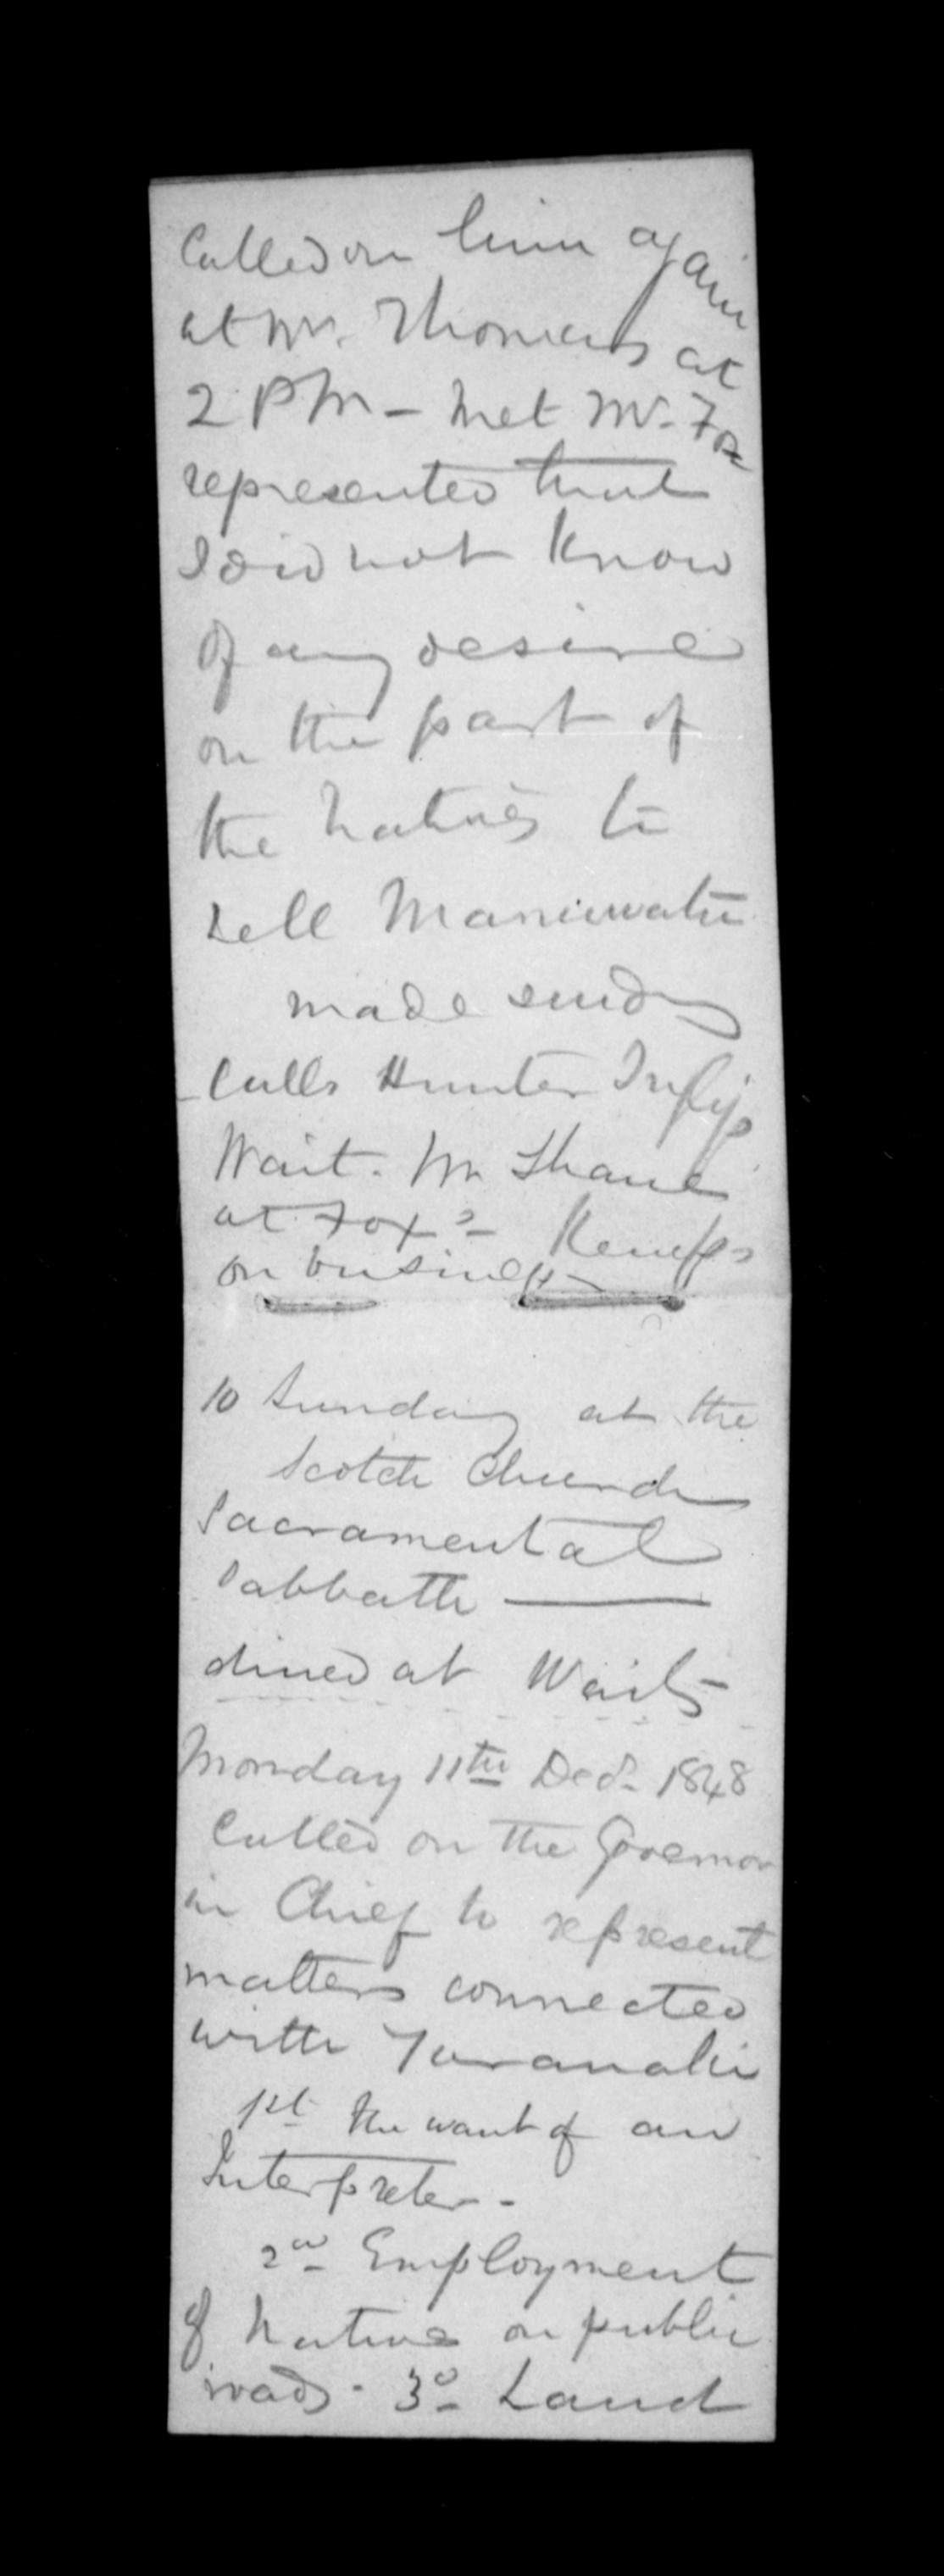 Called on him again
at Mr. Thomas at
2 PM - Met Mr. Fox
represented that
I did not know
of any desire
on the part of
the Natives to
sell Manuwatu
made sundry
Calls Hunter
Wait. Mr
at Fox's Kemps
on business
10 Sunday at the
Scotch Church
Sacramental
Sabbath
dined at Waits
Monday 11th Decr 1848
Called on the Governor
in Chief to represent
matters connected
with Taranaki
1st the want of an
Interpreter -
2nd Employment
of Natives on public
roads - 3d Land